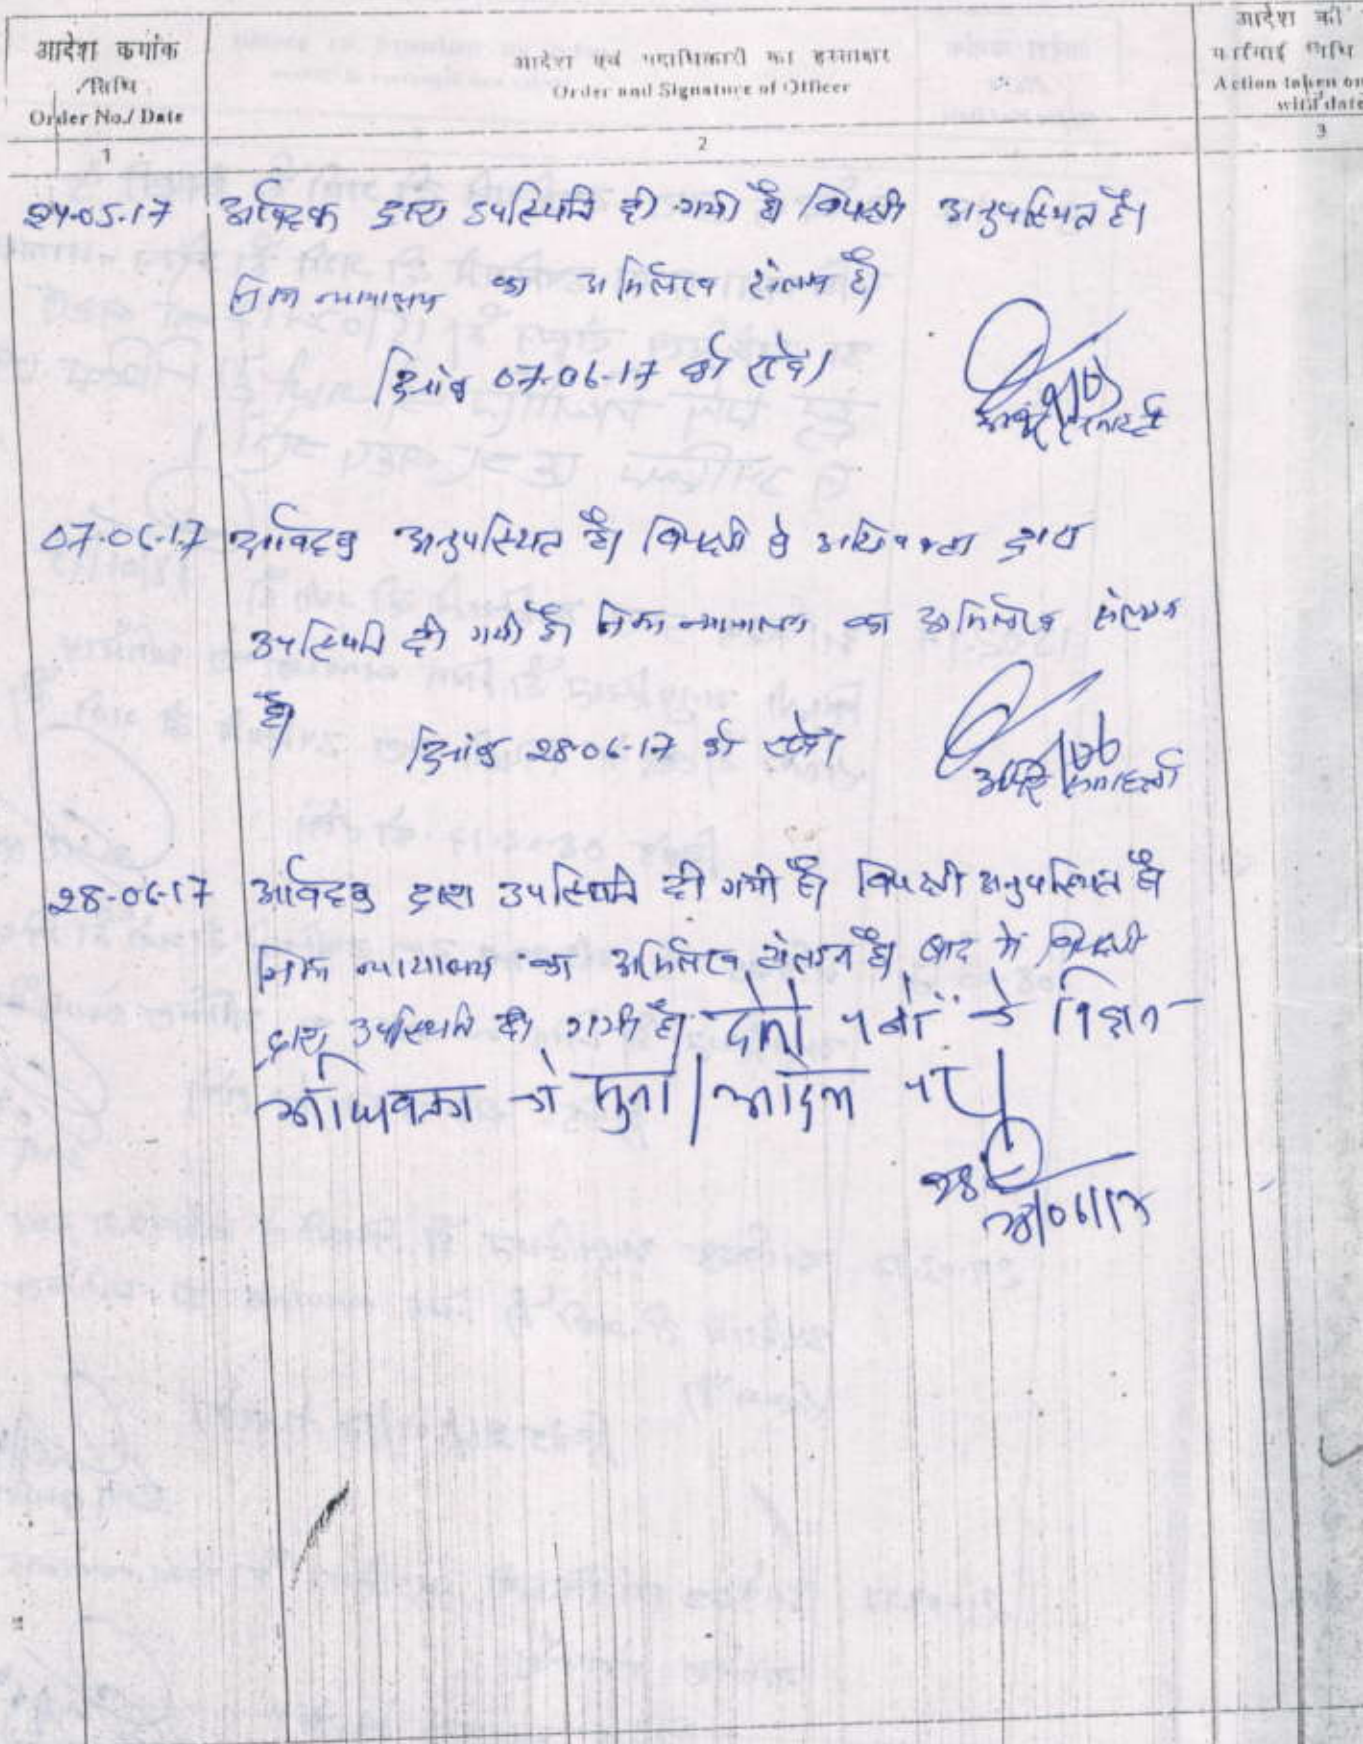 आदेश क्रमांक
/तिथि
Order No./ Date
आदेश एवं पदाधिकारी का हस्ताक्षर
Order and Signature of Officer
आदेश की
कार्रवाई तिथि
Action taken on
with date
1
2
3
24-05-17 आवेदक द्वारा उपस्थिति दी गयी है। विपक्षी अनुपस्थित है।
निम्न न्यायालय का अभिलेख संलग्न है।
दिनांक 07-06-17 को रखें।
07-06-17 आवेदक अनुपस्थित है। विपक्षी के अधिवक्ता द्वारा
उपस्थिति दी गयी है। निम्न न्यायालय का अभिलेख संलग्न
है।
दिनांक 28-06-17 को रखें।
28-06-17 आवेदक द्वारा उपस्थिति दी गयी है। विपक्षी अनुपस्थित है।
निम्न न्यायालय का अभिलेख संलग्न है। बाद में विपक्षी
द्वारा उपस्थिति दी गयी है। दोनों पक्षों के विज्ञान
अधिवक्ता को सुना। आदेश पर।
28/06/17